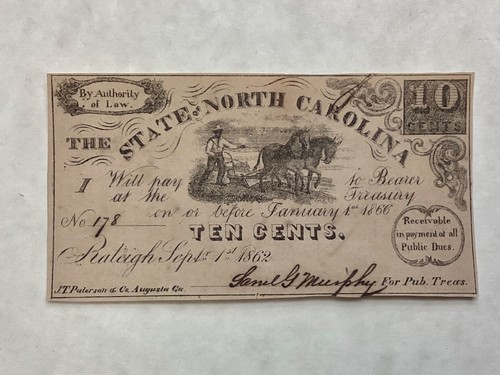 By Authority
of Law.
10
CENTS
THE STATE OF NORTH CAROLINA
I Will pay to Bearer
at the Treasury
No 178 on or before January 1st 1866
TEN CENTS.
Receivable
in payment of all
Public Dues.
Raleigh Sept. 1st 1862
Saml G Murphy For Pub. Treas.
J.T. Paterson & Co. Augusta Ga.